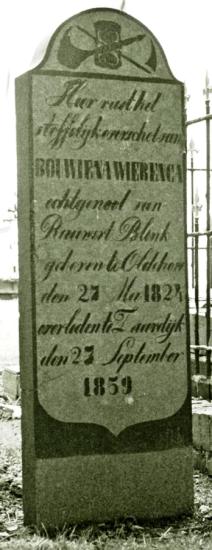 Hier rust het
stoffelijk overschot van
BOUWIENA WIERENGA
echtgenoot van
Rauwert Blink
geboren te Oldehove
den 27 Mei 1824
overleden te Zaardijk
den 27 September
1859